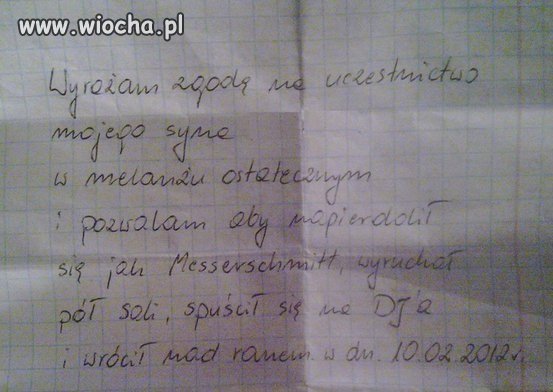 www.wiocha.pl
Wyrażam zgodę na uczestnictwo
mojego syna
w melanżu ostatecznym
i pozwalam aby napierdolił
się jak Messerschmitt, wyruchał
pół sali, spuścił się na DJ'a
i wrócił nad ranem w dn. 10.02.2012r.